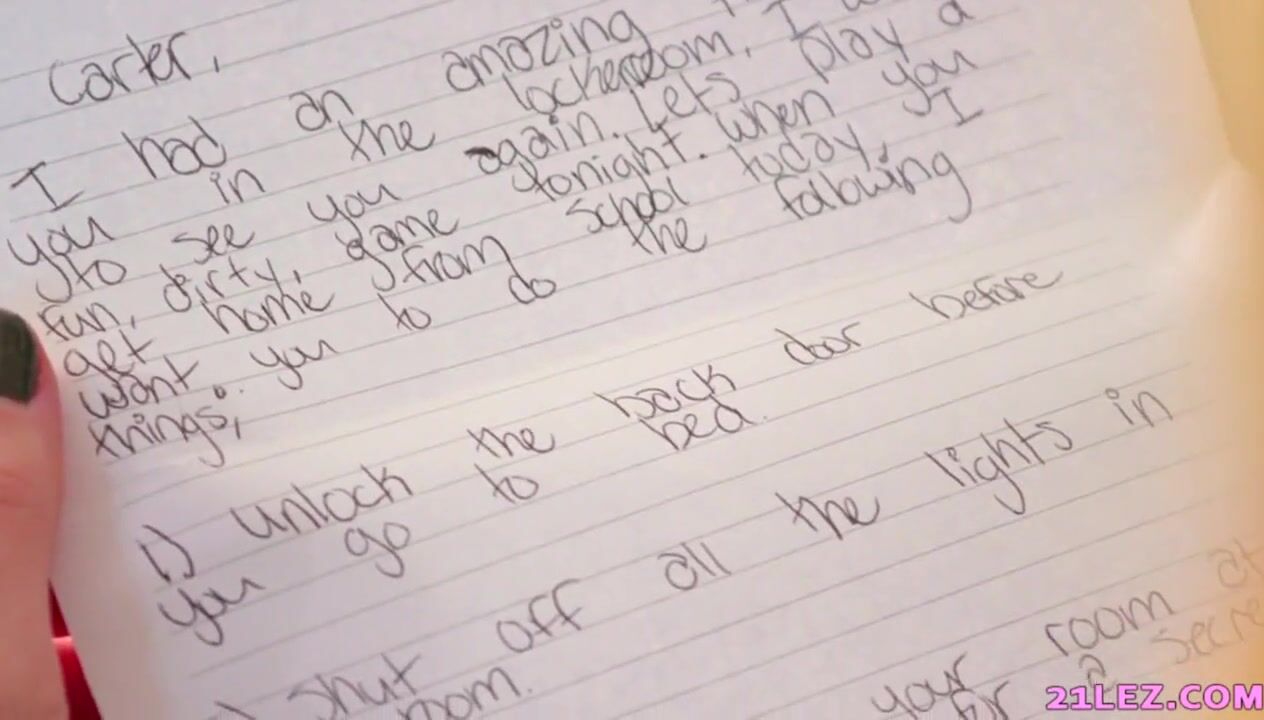 Carter,
I had an amazing
you in the lockerroom. I
to see you again. Lets play a
fun, dirty, game tonight. when you
get home from school today, I
want you to do the following
things;
1) unlock the back door before
you go to bed.
shut off all the lights in
room.
your room at
for a
21LEZ.COM